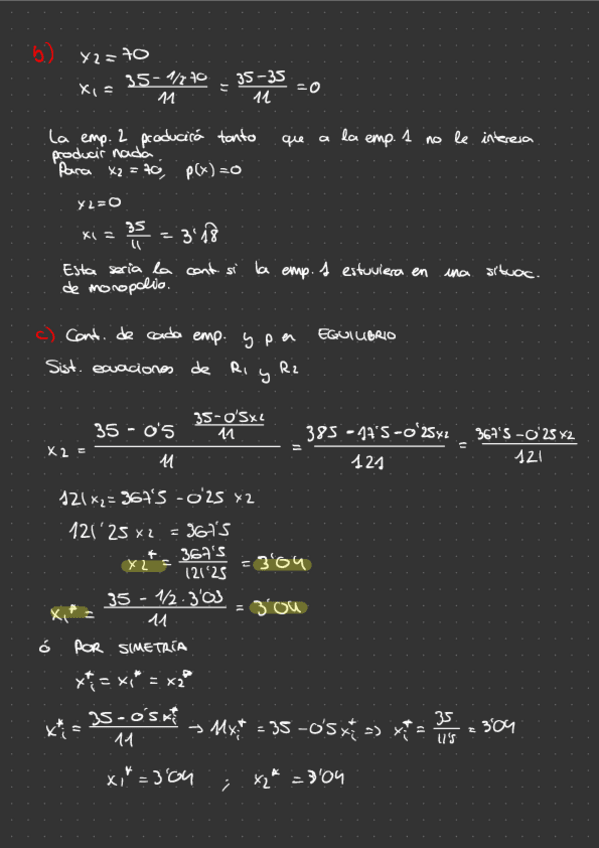 b) x2 = 70
x1 = (35 - 1/2 70)/11 = (35 - 35)/11 = 0
La emp. 2 producirá tanto que a la emp. 1 no le interesa
producir nada.
Para x2 = 70, p(x) = 0
x2 = 0
x1 = 35/11 = 3'18
Esta sería la cant si la emp. 1 estuviera en una situac.
de monopolio.
c) Cant. de cada emp. y p en EQUILIBRIO
Sist. ecuaciones de R1 y R2
x2 = (35 - 0'5 (35 - 0'5x2)/11)/11 = (385 - 17'5 - 0'25x2)/121 = (367'5 - 0'25x2)/121
121x2 = 367'5 - 0'25 x2
121'25 x2 = 367'5
x2* = 367'5/121'25 = 3'04
x1* = (35 - 1/2 · 3'03)/11 = 3'04
ó POR SIMETRÍA
xi* = x1* = x2*
xi* = (35 - 0'5xi*)/11 → 11xi* = 35 - 0'5xi* => xi* = 35/11'5 = 3'04
x1* = 3'04 ; x2* = 3'04